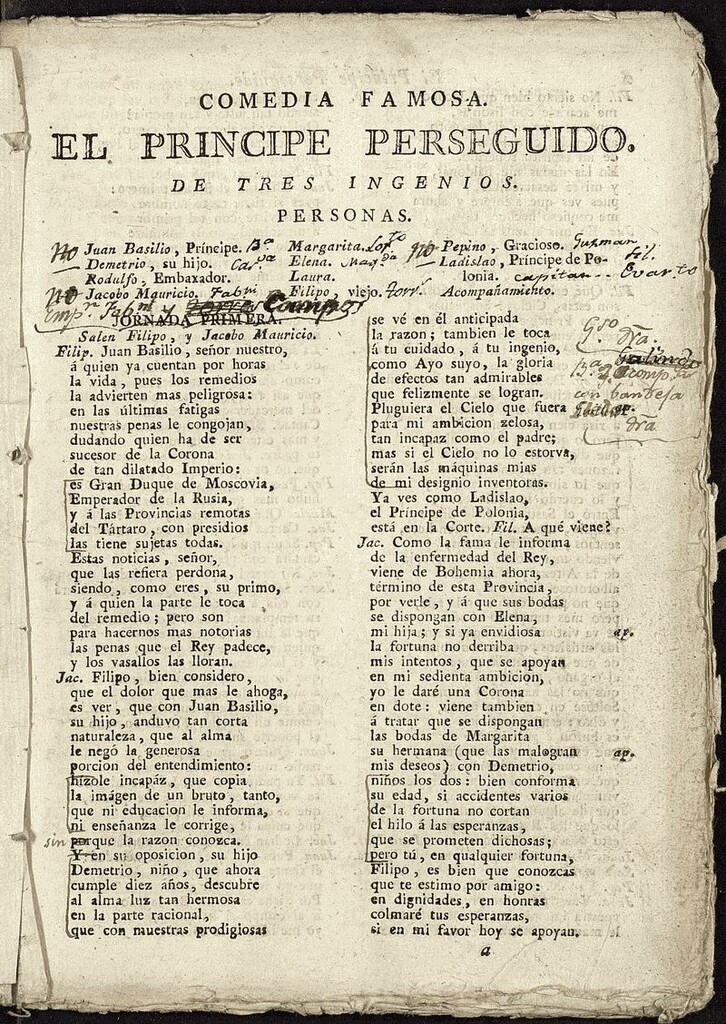 COMEDIA FAMOSA.
EL PRINCIPE PERSEGUIDO.
DE TRES INGENIOS.
PERSONAS.
No Juan Basilio, Príncipe. B.ª
Demetrio, su hijo.
Rodulfo, Embaxador.
No Jacobo Mauricio. Fabri
Margarita.
Elena.
Laura.
Filipo, viejo. Torr.
No Pepino, Gracioso. Guzman
Ladislao, Príncipe de Po-
lonia. capitan Evaristo
Acompañamiento.
JORNADA PRIMERA.
Salen Filipo, y Jacobo Mauricio.
Filip. Juan Basilio, señor nuestro,
á quien ya cuentan por horas
la vida, pues los remedios
la advierten mas peligrosa:
en las últimas fatigas
nuestras penas le congojan,
dudando quien ha de ser
sucesor de la Corona
de tan dilatado Imperio:
es Gran Duque de Moscovia,
Emperador de la Rusia,
y á las Provincias remotas
del Tártaro, con presidios
las tiene sujetas todas.
Estas noticias, señor,
que las refiera perdona,
siendo, como eres, su primo,
y á quien la parte le toca
del remedio; pero son
para hacernos mas notorias
las penas que el Rey padece,
y los vasallos las lloran.
Jac. Filipo, bien considero,
que el dolor que mas le ahoga,
es ver, que con Juan Basilio,
su hijo, anduvo tan corta
naturaleza, que al alma
le negó la generosa
porcion del entendimiento:
hízole incapáz, que copia
la imágen de un bruto, tanto,
que ni educacion le informa,
ni enseñanza le corrige,
sin porque la razon conozca.
Y en su oposicion, su hijo
Demetrio, niño, que ahora
cumple diez años, descubre
al alma luz tan hermosa
en la parte racional,
que con muestras prodigiosas
se vé en él anticipada
la razon; tambien le toca
á tu cuidado, á tu ingenio,
como Ayo suyo, la gloria
de efectos tan admirables
que felizmente se logran.
Pluguiera el Cielo que fuera ap.
para mi ambicion zelosa,
tan incapaz como el padre;
mas si el Cielo no lo estorva,
serán las máquinas mias
de mi designio inventoras.
Ya ves como Ladislao,
el Príncipe de Polonia,
está en la Corte. Fil. A qué viene?
Jac. Como la fama le informa
de la enfermedad del Rey,
viene de Bohemia ahora,
término de esta Provincia,
por verle, y á que sus bodas
se dispongan con Elena,
mi hija; y si ya envidiosa ap.
la fortuna no derriba
mis intentos, que se apoyan
en mi sedienta ambicion,
yo le daré una Corona
en dote: viene tambien
á tratar que se dispongan
las bodas de Margarita
su hermana (que las malogran ap.
mis deseos) con Demetrio,
niños los dos: bien conforma
su edad, si accidentes varios
de la fortuna no cortan
el hilo á las esperanzas,
que se prometen dichosas;
pero tú, en qualquier fortuna,
Filipo, es bien que conozcas
que te estimo por amigo:
en dignidades, en honras
colmaré tus esperanzas,
si en mi favor hoy se apoyan.
con bandeja
a